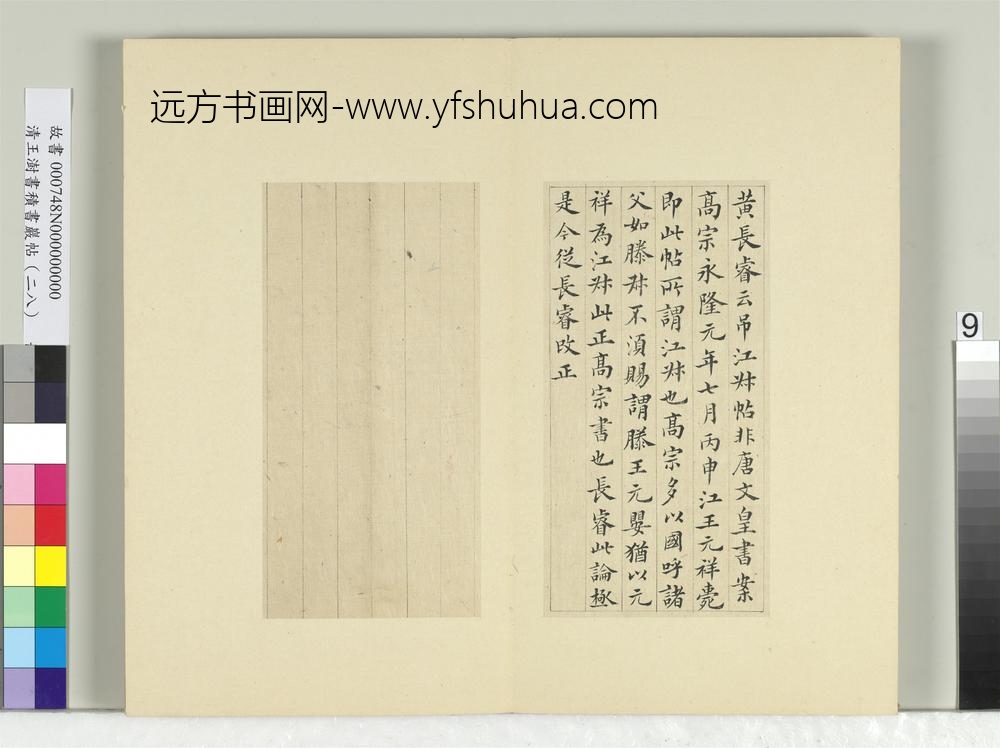 远方书画网-www.yfshuhua.com
故書 000748N000000000
清王澍書積書巖帖（二八）
9
黃長睿云吊江𡭗帖非唐文皇書案
高宗永隆元年七月丙申江王元祥薨
即此帖所謂江𡭗也高宗多以國呼諸
父如滕𡭗不湏賜謂滕王元嬰猶以元
祥為江𡭗此正高宗書也長睿此論極
是今從長睿改正